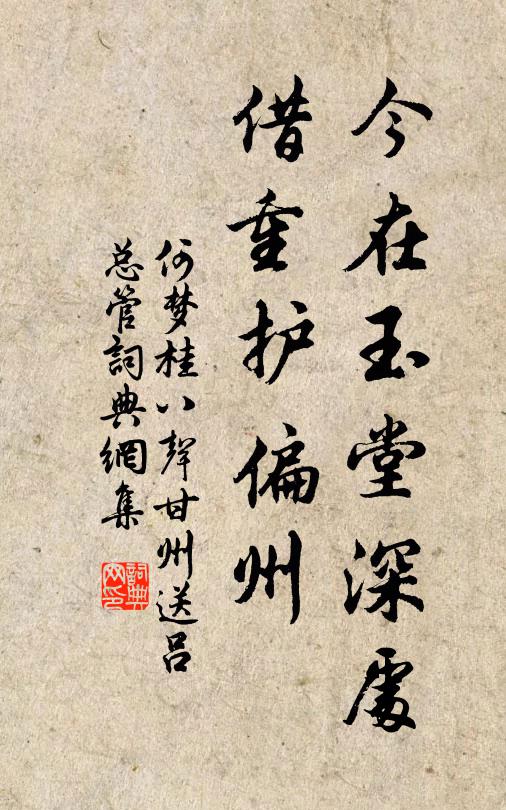 今在玉堂深處
借重护偏州
何梦桂八聲甘州送吕
总管詞典網集
詞典
网印